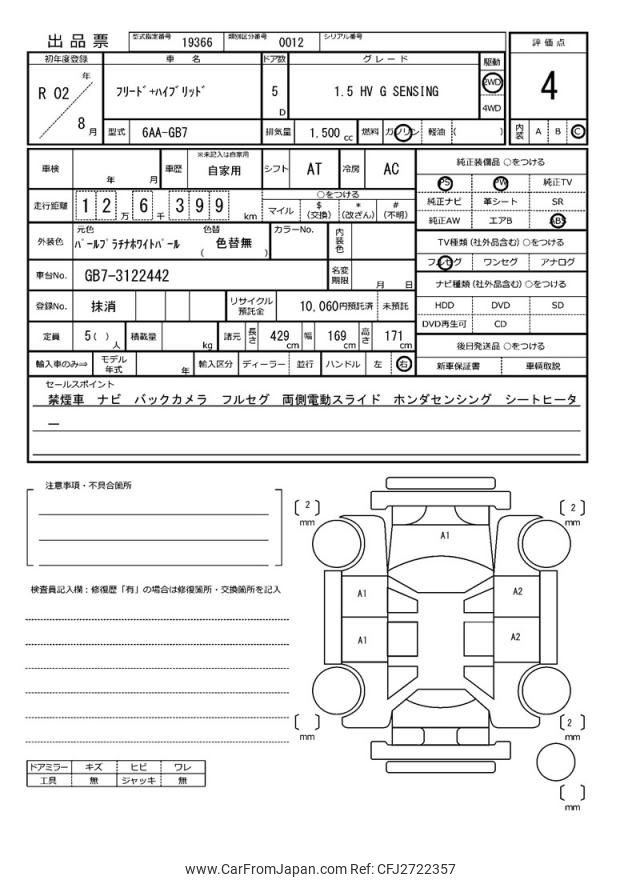 出品票 型式指定番号 19366 類別区分番号 0012 シリアル番号
評価点
4
内装 A B C
初年度登録 車名 ドア数 グレード 駆動
R 02 年 8 月 フリード+ハイブリッド 5 D 1.5 HV G SENSING 2WD 4WD
型式 6AA-GB7 排気量 1.500 cc 燃料 ガソリン 軽油 ( )
車検 年 月 車歴 ※未記入は自家用 自家用 シフト AT 冷房 AC
走行距離 1 2 万 6 千 3 9 9 km ○をつける
マイル $ (交換) * (改ざん) # (不明)
外装色 元色 パールプラチナホワイトパール 色替 ( 色替無 ) カラーNo. 内装色
車台No. GB7-3122442 名変期限 月 日
登録No. 抹消 リサイクル預託金 10,060円預託済 未預託
定員 5( ) 人 積載量 kg 諸元 長さ 429 cm 幅 169 cm 高さ 171 cm
輸入車のみ⇒ モデル年式 年 輸入区分 ディーラー 並行 ハンドル 左 右
純正装備品 ○をつける
PS PW 純正TV
純正ナビ 革シート SR
純正AW エアB ABS
TV種類 (社外品含む) ○をつける
フルセグ ワンセグ アナログ
ナビ種類 (社外品含む) ○をつける
HDD DVD SD
DVD再生可 CD
後日発送品 ○をつける
新車保証書 車輌取説
セールスポイント
禁煙車 ナビ バックカメラ フルセグ 両側電動スライド ホンダセンシング シートヒータ
ー
注意事項・不具合箇所
検査員記入欄:修復歴「有」の場合は修復箇所・交換箇所を記入
ドアミラー キズ ヒビ ワレ
工具 無 ジャッキ 無
[ 2 ] mm
[ 2 ] mm
A1
A1 A2
A1 A2
[ ] mm
[ 2 ] mm
[ ] mm
www.CarFromJapan.com Ref: CFJ2722357